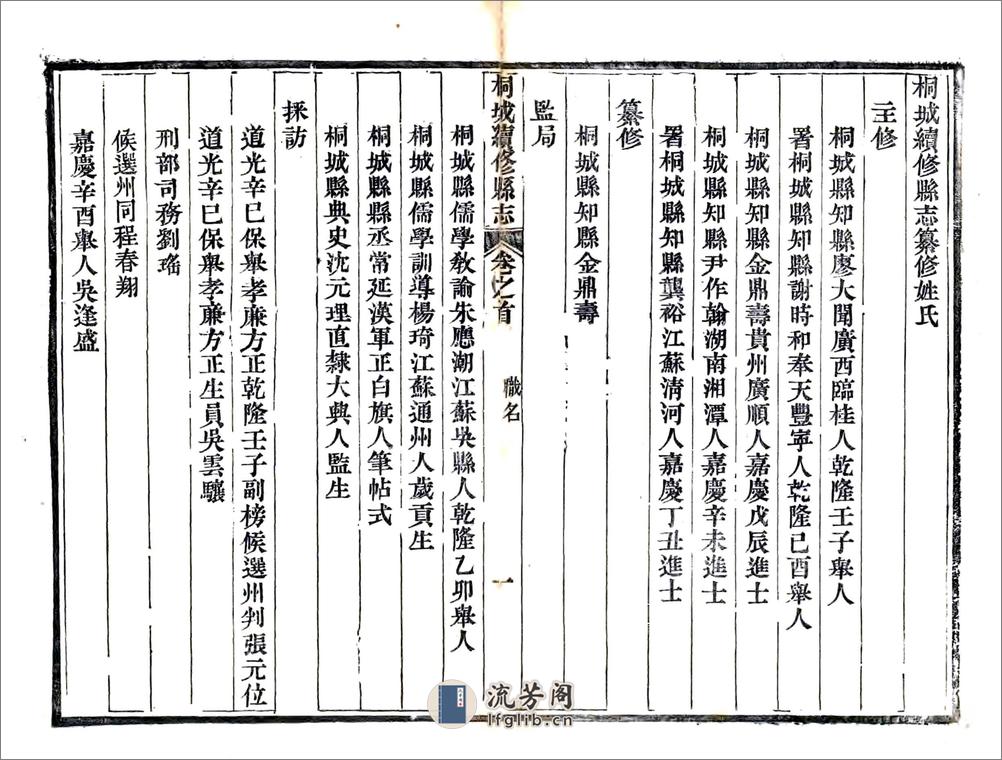 桐城續修縣志纂修姓氏
主修
桐城縣知縣廖大聞廣西臨桂人乾隆壬子舉人
署桐城縣知縣謝時和奉天豐寧人乾隆己酉舉人
桐城縣知縣金鼎壽貴州廣順人嘉慶戊辰進士
桐城縣知縣尹作翰湖南湘潭人嘉慶辛未進士
署桐城縣知縣龔裕江蘇清河人嘉慶丁丑進士
纂修
桐城縣知縣金鼎壽
監局
桐城續修縣志 卷之首 職名 一
桐城縣儒學教諭朱應潮江蘇吳縣人乾隆乙卯舉人
桐城縣儒學訓導楊琦江蘇通州人歲貢生
桐城縣縣丞常延漢軍正白旗人筆帖式
桐城縣典史沈元理直隸大興人監生
採訪
道光辛巳保舉孝廉方正乾隆壬子副榜候選州判張元位
道光辛巳保舉孝廉方正生員吳雲驤
刑部司務劉瑤
候選州同程春翔
嘉慶辛酉舉人吳逢盛
流芳阁
lfglib.cn